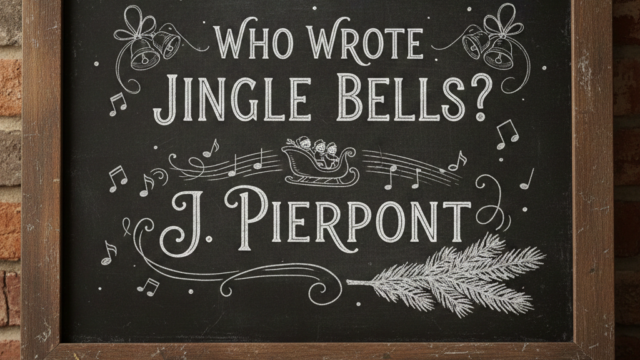 Who Wrote
Jingle Bells?
J. Pierpont